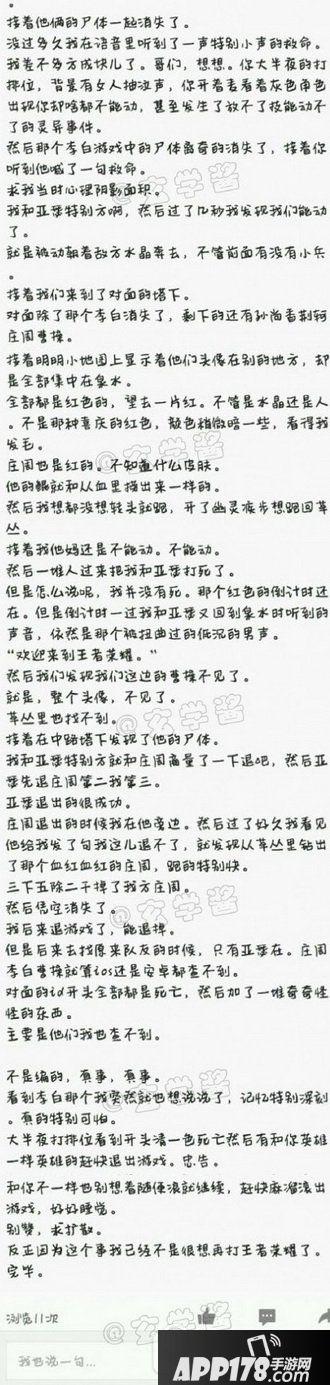 。
接着他俩的尸体一起消失了。
没过多久我在语音里听到了一声特别小声的救命。
我差不多方成快儿了。哥们，想想。你大半夜的打
排位，背景有女人抽泣声，你开着麦看着灰色角色
出现你却啥都不能动，甚至发生了放不了技能动不
了的灵异事件。
然后那个李白游戏中的尸体离奇的消失了，接着你
听到他喊了一句救命。
求我当时心理阴影面积。
我和亚瑟特别方啊，然后过了几秒我发现我们能动
了。
就是被动朝着敌方水晶奔去，不管前面有没有小兵
。
接着我们来到了对面的塔下。
对面除了那个李白消失了，剩下的还有孙尚香荆轲
庄周曹操。
接着明明小地图上显示着他们头像在别的地方，却
是全部集中在泉水。
全部都是红色的，望去一片红。不管是水晶还是人
。不是那种喜庆的红色，颜色稍微暗一些，看得我
发毛。
庄周也是红的。不知道什么皮肤。
他的鲲就和从血里捞出来一样的。
然后我想都没想转头就跑，开了幽灵疾步想跑回草
丛。
接着我他妈还是不能动。不能动。
然后一堆人过来把我和亚瑟打死了。
但是怎么说呢，我并没有死。那个红色的倒计时还
在。但是倒计时一过我和亚瑟又回到泉水时听到的
声音，依然是那个被扭曲过的低沉的男声。
“欢迎来到王者荣耀。”
然后我们发现我们这边的曹操不见了。
就是，整个头像，不见了。
草丛里也找不到。
接着在中路塔下发现了他的尸体。
我和亚瑟特别方就和庄周商量了一下退吧，然后亚
瑟先退庄周第二我第三。
亚瑟退出的很成功。
庄周退出的时候我在他旁边。然后过了好久我看见
他给我发了句我这儿退不了，就发现从草丛里钻出
了那个血红血红的庄周，跑的特别快。
三下五除二干掉了我方庄周。
然后凭空消失了。
我后来退游戏了，能退掉。
但是后来去找原来队友的时候，只有亚瑟在。庄周
李白曹操就算ios还是安卓都查不到。
对面的id开头全部都是死亡，然后加了一堆奇奇怪
怪的东西。
主要是他们我也查不到。
不是编的，真事，真事。
看到李白那个我突然就也想说说了，记忆特别深刻
。真的特别可怕。
大半夜打排位看到开头清一色死亡然后有和你英雄
一样英雄的赶快退出游戏。忠告。
和你不一样也别想着随便浪就继续，赶快麻溜滚出
游戏，好好睡觉。
别赞，求扩散。
反正因为这个事我已经不是很想再打王者荣耀了。
完毕。
@玄学酱
浏览11次
我也说一句...
APP178手游网
.com